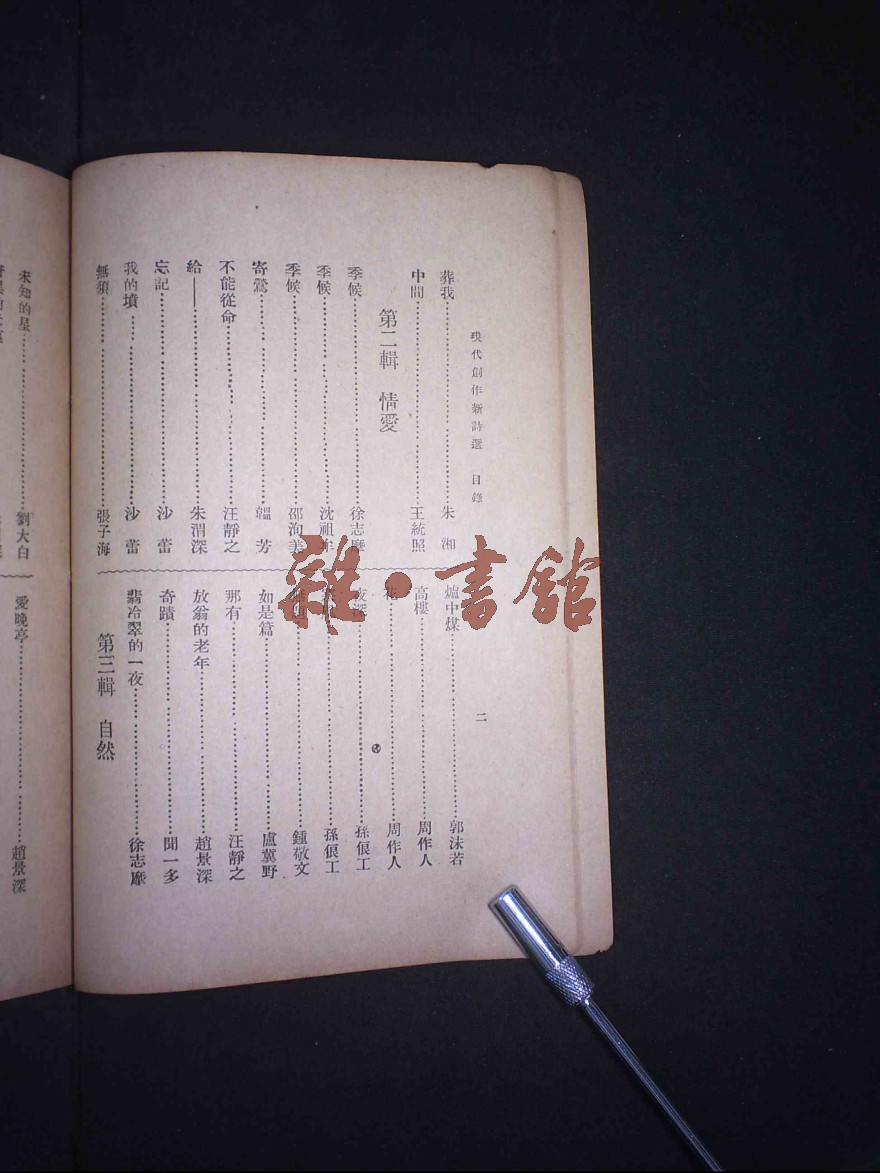 現代創作新詩選 目錄
二
葬我……朱湘
中間……王統照
第二輯 情愛
季候……徐志摩
季候……沈祖牟
季候……邵洵美
寄鶯……韞芳
不能從命……汪靜之
給——……朱渭深
忘記……沙蕾
我的墳……沙蕾
無須……張子海
爐中煤……郭沫若
高樓……周作人
花……周作人
夜深……孫俍工
……孫俍工
……鍾敬文
如是篇……盧冀野
那有……汪靜之
放翁的老年……趙景深
奇蹟……聞一多
翡冷翠的一夜……徐志摩
第三輯 自然
未知的星……劉大白
愛晚亭……趙景深
雜·書館